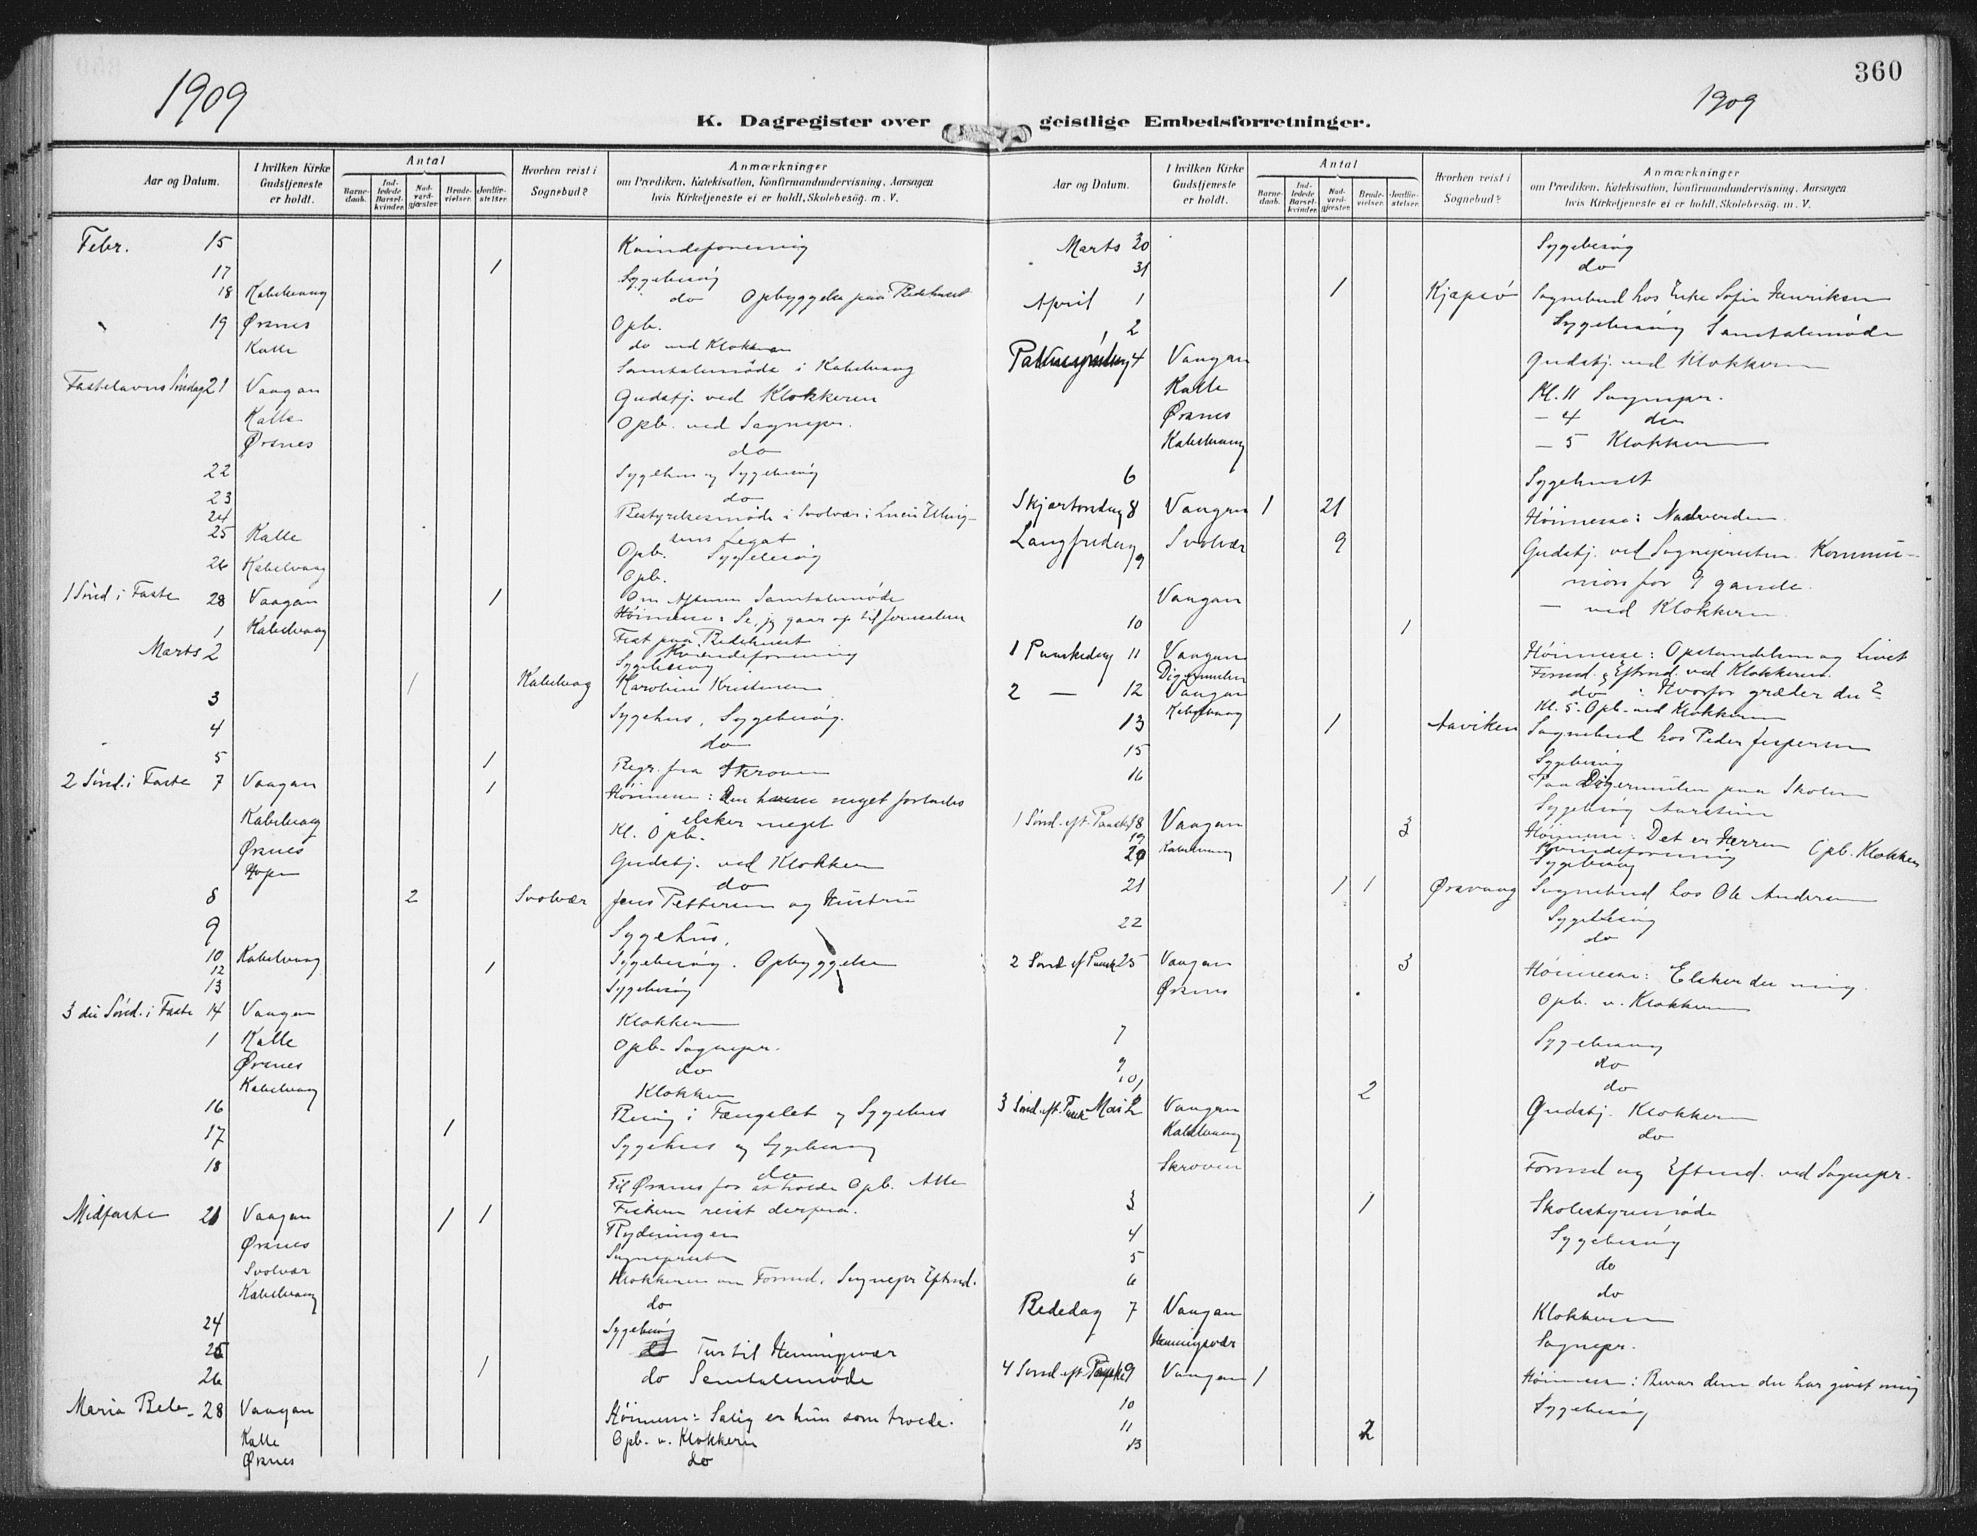 1909
K. Dagregister over
Aar og Datum.
I hvilken Kirke Gudstjeneste er holdt.
Antal
Barne-daab.
Ind-ledede Barsel-kvinder.
Nad-verd-gjæster.
Brude-vielser.
Jordfæ-stelser.
Hvorhen reist i Sognebud?
Anmærkninger
om Prædiken, Katekisation, Konfirmandundervisning, Aarsagen
hvis Kirketjeneste ei er holdt, Skolebesøg. m. V.
Febr. 15 Kvindeforening
17 1 Sygebesøg
18 Kabelvaag do Opbyggelse paa Bedehuset
19 Ørsnes Opb.
Kalle do ved Klokkeren
Samtalemøde i Kabelvaag
Fastelavns Søndag 21 Vaagan Gudstj. ved Klokkeren
Kalle Opb. ved Sognepr.
Ørsnes do
22 Sygehus og Sygebesøg
23 do
24 Bestyrelsesmøde i Svolvær i
Legat
25 Kalle Opb. Sygebesøg
26 Kabelvaag Opb.
Om Aftenen Samtalemøde
1 Sønd i Faste 28 Vaagan 1 Høimesse: Se, jeg gaar op til Jerusalem
1 Kabelvaag Fest paa Bedehuset
Marts 2 Kvindeforening
Sygebesøg
1 Kabelvaag Karoline Kristensen
3 Sygehus, Sygebesøg.
4 do
5 1 Begr. fra Skroven
2 Sønd. i Faste 7 Vaagan 1 Høimesse: Den meget forlades
elsker meget
Kabelvaag Kl. Opb.
Ørsnes Gudstj. ved Klokkeren
Hopen do
8 2 Svolvær Jens Pettersen og Hustru
9 Sygehus,
10 Kabelvaag Sygebesøg. Opbyggelse
12 1
13 Sygebesøg
3 die Sønd. i Faste 14 Vaagan Klokkeren
1 Kalle Opb. Sognepr.
Ørsnes do
Kabelvaag Klokkeren
16 Besøg i Fængslet og Sygehus
17 1 Sygehus og Sygebesøg
18 do
Til Ørsnes for at holde Opb. Alle
Fiskere reist derfra.
Midfaste 21 Vaagan 1 1 Rydningen
Ørsnes Sognepresten
Svolvær Klokkeren om Formd. Sognepr Eftmd.
Kabelvaag do
24 Sygebesøg
25 Tur til Henningsvær
26 1 do Samtalemøde
Maria Beb. 28 Vaagan Høimesse: Salig er hun som troede.
Kalle Opb. v. Klokkeren
Ørsnes do
360
1909
geistlige Embedsforretninger.
Aar og Datum.
I hvilken Kirke Gudstjeneste er holdt.
Antal
Barne-daab.
Ind-ledede Barsel-kvinder.
Nad-verd-gjæster.
Brude-vielser.
Jordfæ-stelser.
Hvorhen reist i Sognebud?
Anmærkninger
om Prædiken, Katekisation, Konfirmandundervisning, Aarsagen
hvis Kirketjeneste ei er holdt, Skolebesøg. m. V.
Marts 30 Sygebesøg
31 do
April 1 1 Kjæpsø Sognebud hos Enke Sofie Henriksen
2 Sygebesøg Samtalemøde
Palmesøndag 4 Vaagan Gudstj. ved Klokkeren
Kalle Kl. 11 Sognepr.
Ørsnes – 4 do
Kabelvaag – 5 Klokkeren
6 Sygehuset
Skjærtorsdag 8 Vaagan 1 21 Høimesse: Nadverden.
Langfredag 9 Svolvær 9 Gudstj. ved Sognepresten Kommu-
nion for 9 gande.
Vaagan – ved Klokkeren
10 1
1 Paaskedag 11 Vaagan Høimesse: Opstandelsen og Livet
Digermulen Formd. & Eftmd. ved Klokkeren.
2 — 12 Vaagan do : Hvorfor græder du?
Kabelvaag Kl. 5. Opb. ved Klokkeren
13 1 Aaviken Sognebud hos Peder Jespersen
15 Sygebesøg
16 Paa Digermulen paa Skolen
Sygebesøg
1 Sønd. eft. Paaske 18 Vaagan 3 Høimesse: Det er Herren Opb. Klokken
19 Kabelvaag Kvindeforening
20 Sygebesøg
21 1 1 Ørsvaag Sognebud hos Ole Andersen
Sygebesøg
22 do
2 Sønd ef Paask 25 Vaagan 3 Høimesse: Elsker du mig.
Ørsnes Opb. v. Klokkeren
7 Sygebesøg
9 do
2 do
3 Sønd. eft. Paask Mai 2 Vaagan Gudstj. Klokkeren
Kabelvaag do
Skroven Formd og Eftmd. ved Sognepr.
3 1 Skolestyremøde
4 Sygebesøg
5 do
6 do
Bededag 7 Vaagan Klokkeren
Henningsvær Sognepr.
4 Sønd eft. Paaske 9 Vaagan 1 Høimesse: Bevar dem du har givet mig
10 Sygebesøg
11 2
13